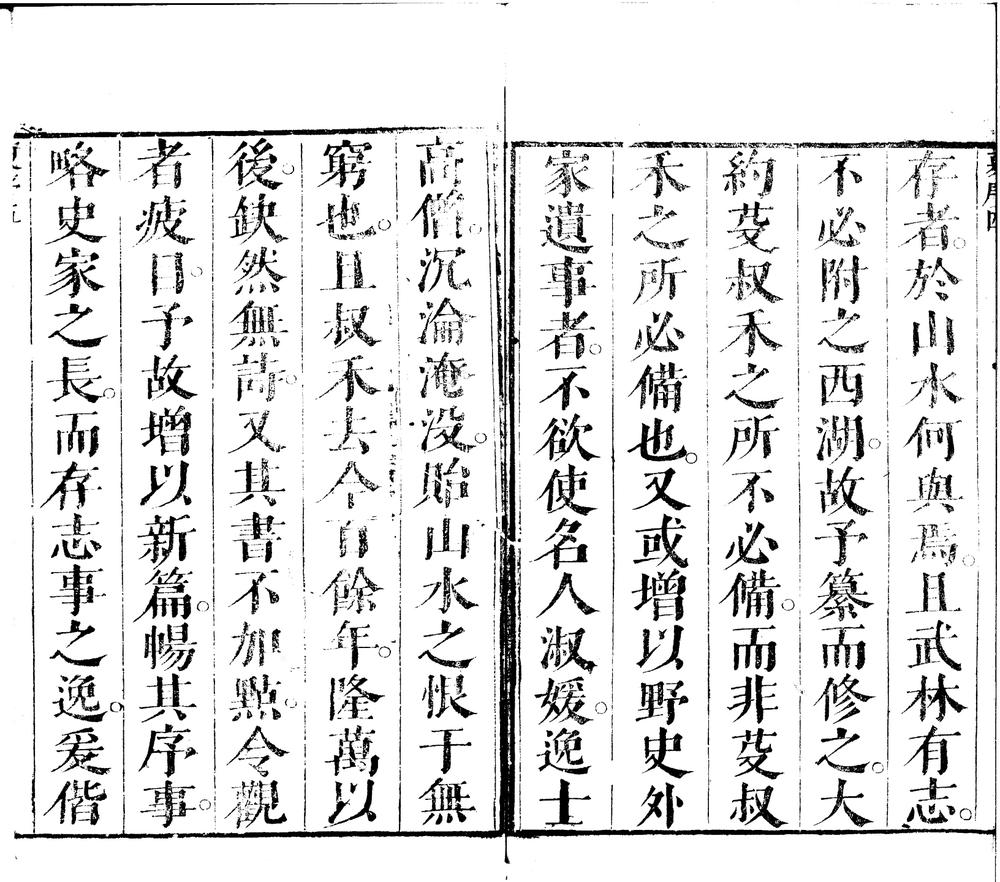 存者於山水何與焉且武林有志
不必附之西湖故予纂而修之大
約芟叔禾之所不必備而非芟叔
禾之所必備也又或增以野史外
家遺事者不欲使名人淑媛逸士
高僧沉淪淹没貽山水之恨于無
窮也且叔禾去今百餘年隆萬以
後缺然無聞又其書不加點令觀
者疲目予故增以新篇暢其序事
略史家之長而存志事之逸爰偕